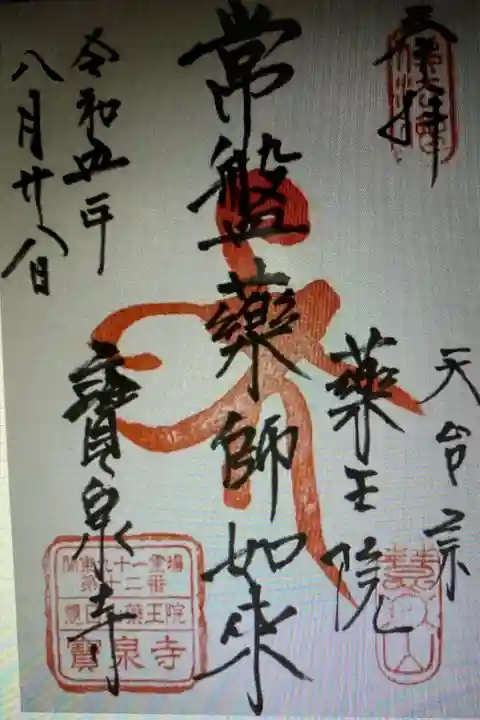 奉拝
天台宗
藥王院
常盤藥師如来
寳泉寺
令和五年
八月廿八日
関東九十一霊場
第十二番
薬王院
寳泉寺